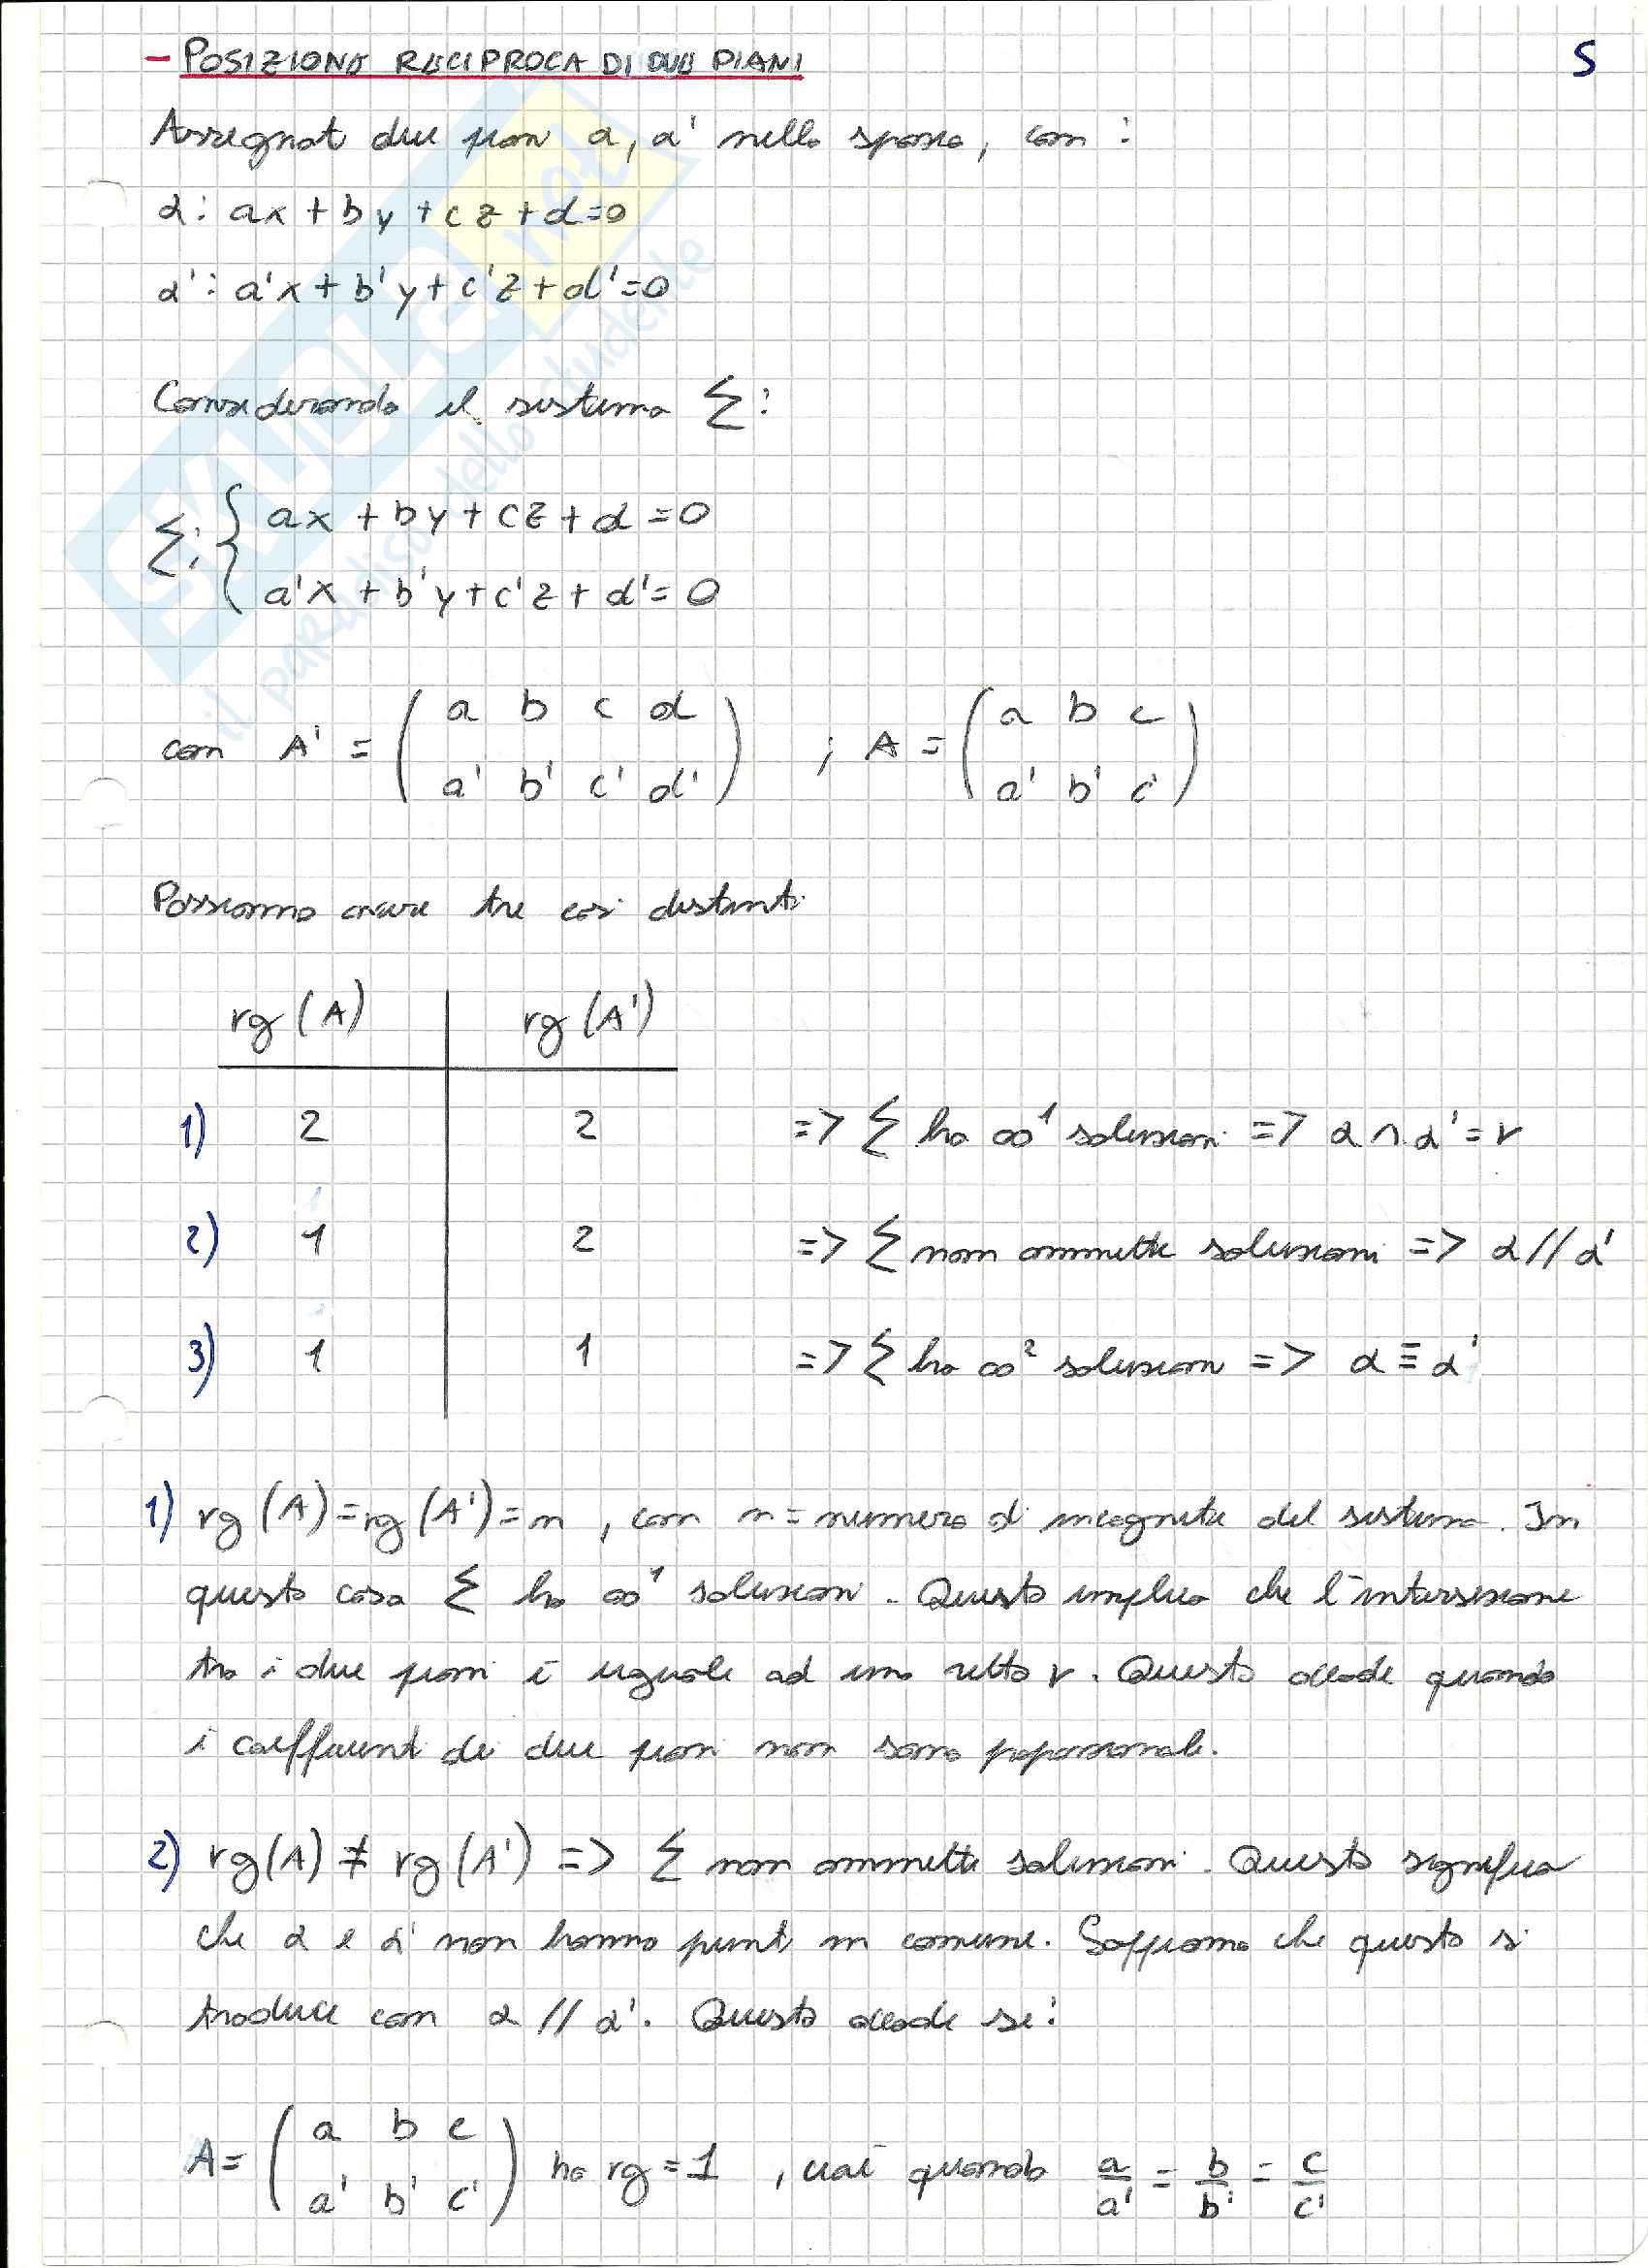 - POSIZIONE RECIPROCA DI DUE PIANI
5
Assegnati due piani α, α' nello spazio, con :
α: ax + by + cz + d = 0
α': a'x + b'y + c'z + d' = 0
Considerando il sistema Σ:
Σ: { ax + by + cz + d = 0
a'x + b'y + c'z + d' = 0
con A' = ( a b c d
a' b' c' d' ) ; A = ( a b c
a' b' c' )
Possiamo avere tre casi distinti
rg (A) rg (A')
1) 2 2 => Σ ha ∞¹ soluzioni => α ∩ α' = r
2) 1 2 => Σ non ammette soluzioni => α // α'
3) 1 1 => Σ ha ∞² soluzioni => α ≡ α'
1) rg (A) = rg (A') = n , con n = numero di incognite del sistema. In
questo caso Σ ha ∞¹ soluzioni. Questo implica che l'intersezione
tra i due piani è uguale ad una retta r. Questo accade quando
i coefficienti dei due piani non sono poporzionali.
2) rg(A) ≠ rg (A') => Σ non ammette soluzioni. Questo significa
che α e α' non hanno punti in comune. Sappiamo che questo si
traduce con α // α'. Questo accade se:
A = ( a b c
a' b' c' ) ha rg = 1 , cioè quando a/a' = b/b' = c/c'
il paradiso dello studente